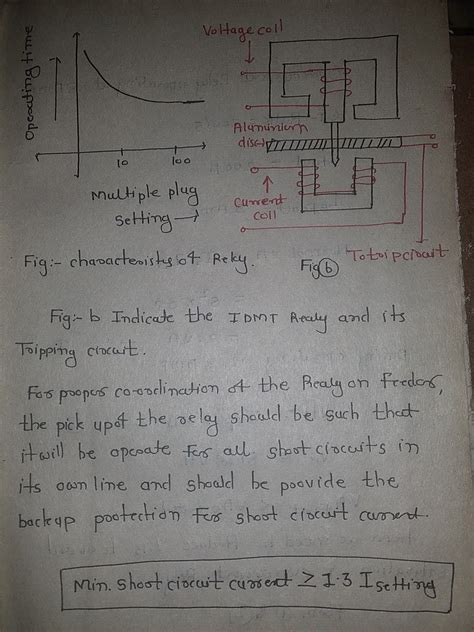 Voltage coil
Operating time
Aluminium
disc
10
100
Multiple plug
setting →
Current
coil
To trip circuit
Fig:- characteristys of Relay.
Fig (b)
Fig:- b Indicate the IDMT Realy and its
Tripping circuit.
For proper co-ordination of the Realy on feeder,
the pick up of the relay should be such that
it will be operate for all short circuits in
its own line and should be provide the
backup protection for short circuit current.
Min. short circuit current ≥ 1.3 I setting